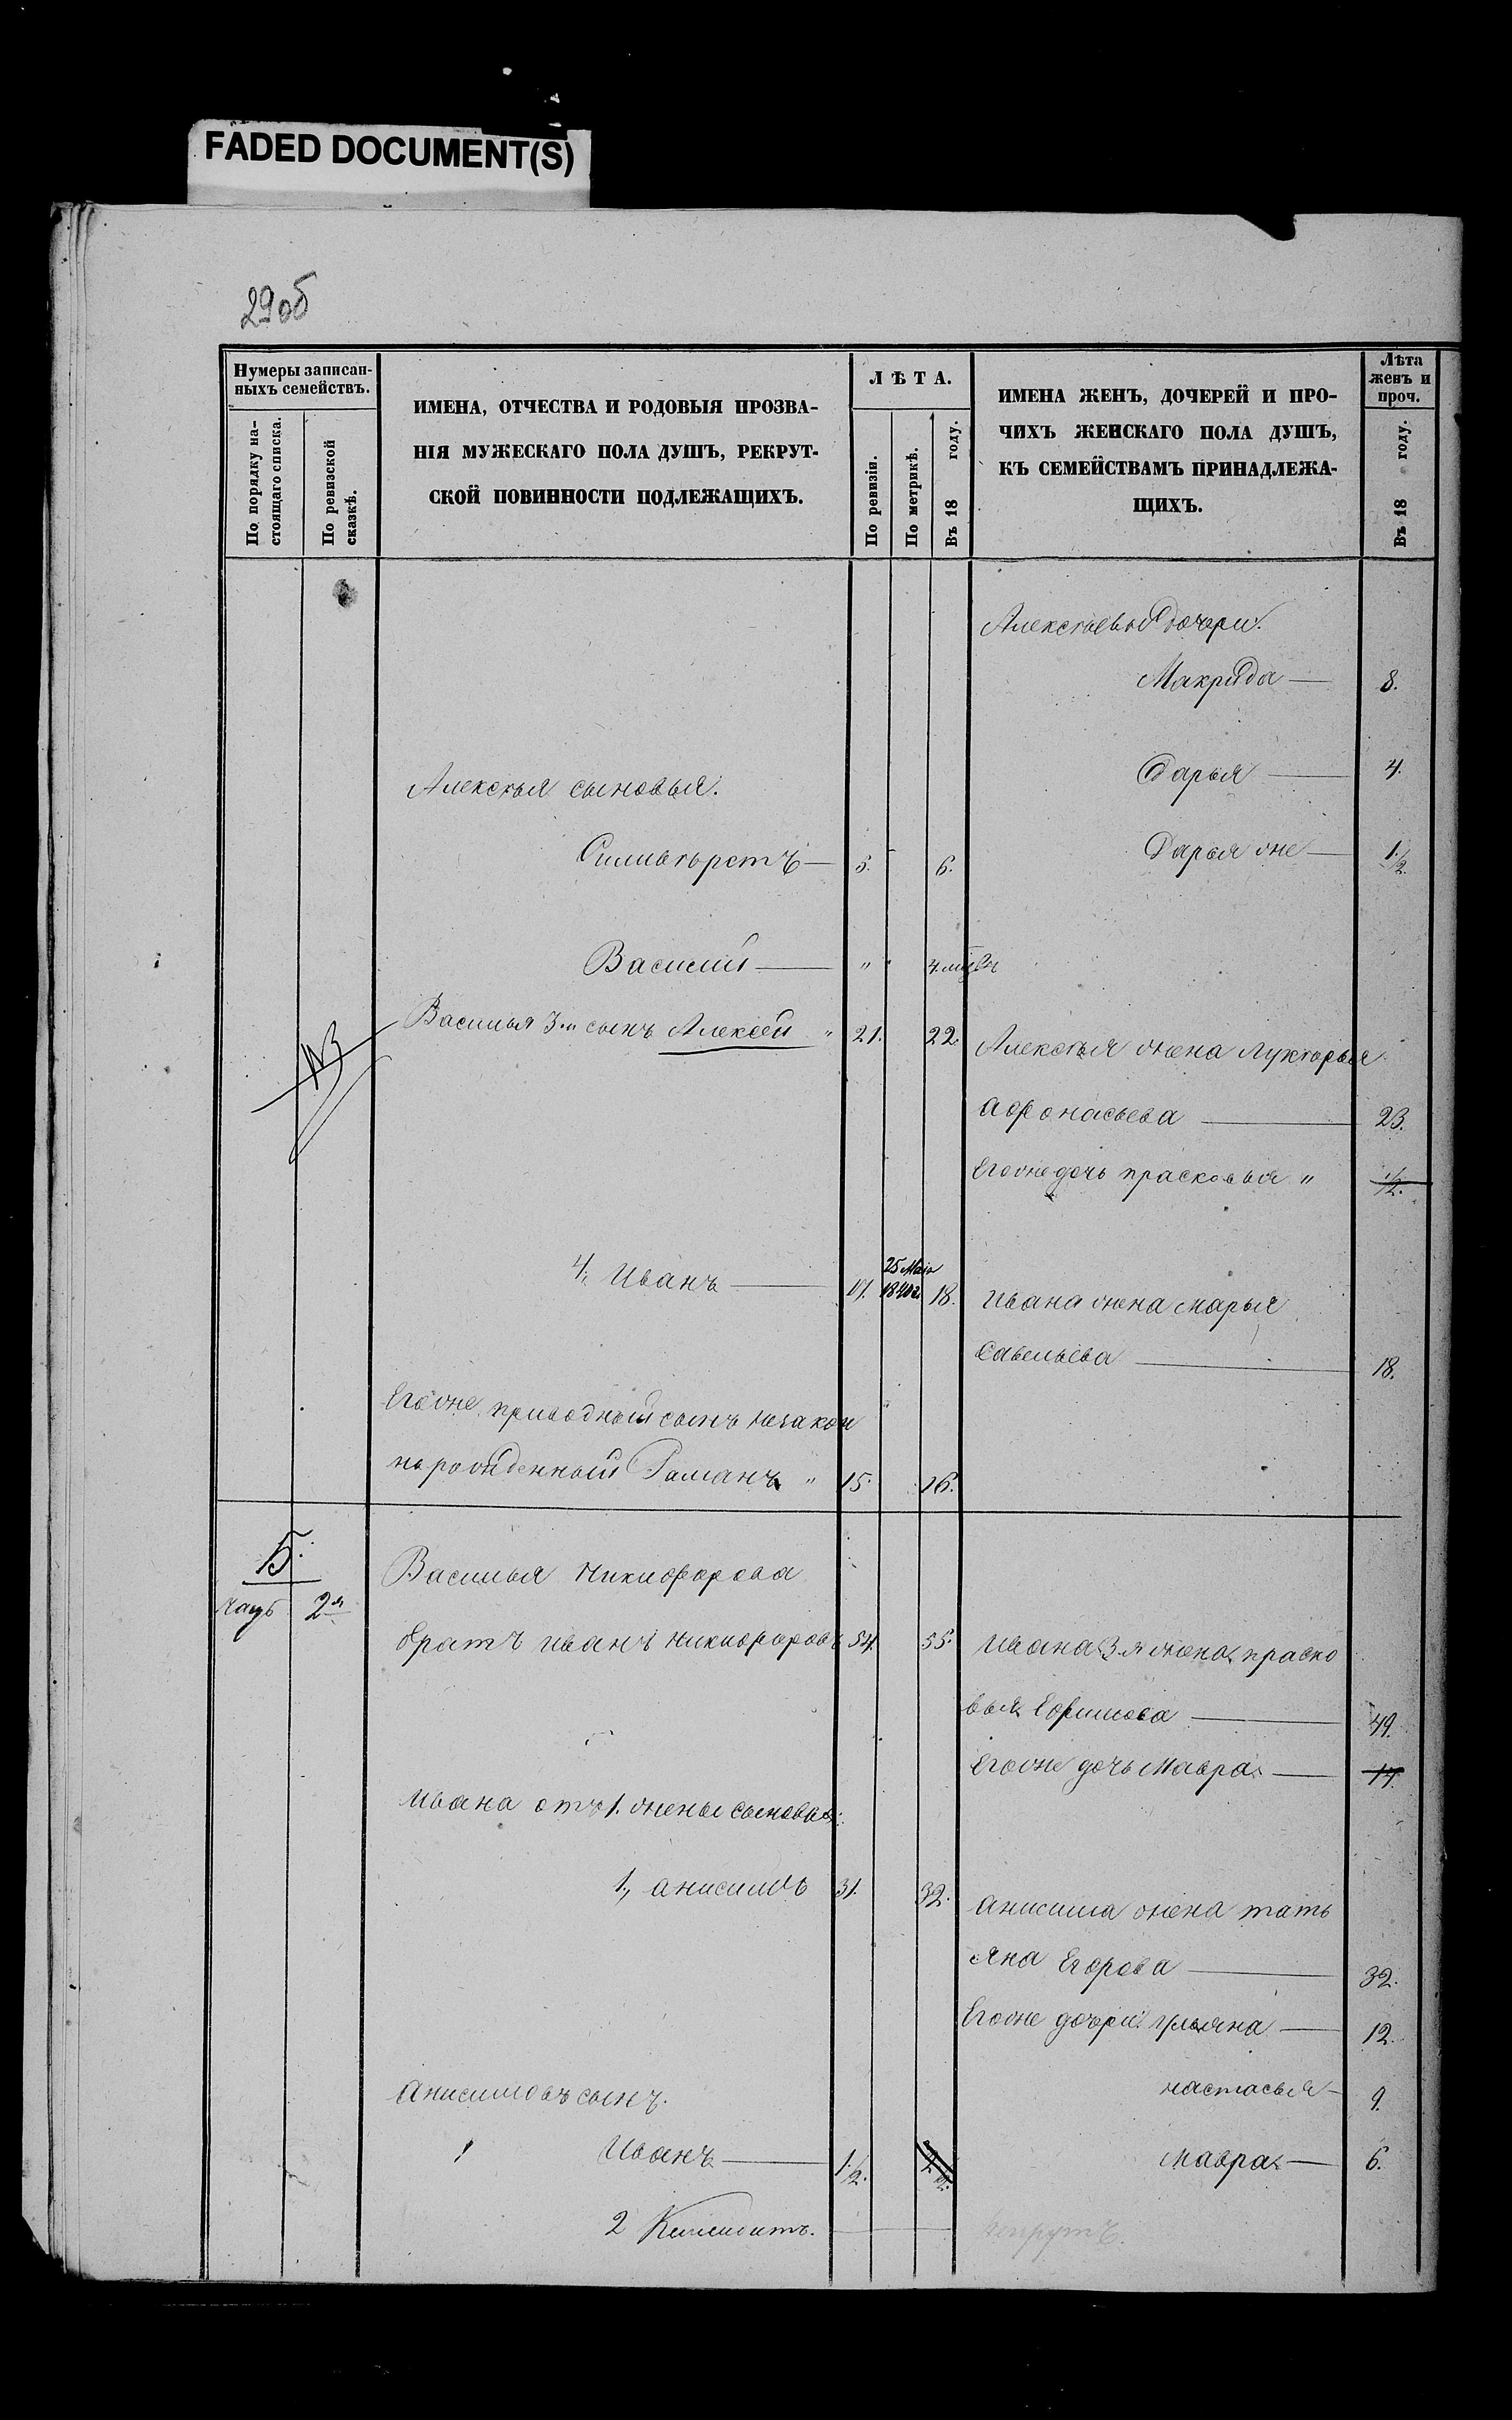 FADED DOCUMENT(S)
29об
Нумеры записан-
ныхъ семействъ.
По порядку на-
стоящаго списка.
По ревизской
сказкѣ.
ИМЕНА, ОТЧЕСТВА И РОДОВЫЯ ПРОЗВА-
НІЯ МУЖЕСКАГО ПОЛА ДУШЪ, РЕКРУТ-
СКОЙ ПОВИННОСТИ ПОДЛЕЖАЩИХЪ.
ЛѢТА.
По ревизіи.
По метрикѣ.
Въ 18 году.
ИМЕНА ЖЕНЪ, ДОЧЕРЕЙ И ПРО-
ЧИХЪ ЖЕНСКАГО ПОЛА ДУШЪ,
КЪ СЕМЕЙСТВАМЪ ПРИНАДЛЕЖА-
ЩИХЪ.
Лѣта
женъ и
проч.
Въ 18 году.
Алексѣевы дочери.
Макрида — 8.
Дарья — 4.
Алексѣя сыновья.
Дарья же — 1/2.
Силивѣрстъ — 5. 6.
Василий — " 4. мѣсцъ
Василья 3й сынъ Алексѣй " 21. 22.
Алексѣя жена Лукѣрья
Афонасьева — 23.
Егоже дочь прасковья " 1/2.
4, Иванъ — 17. 25 Мая 1840г. 18.
Ивана жена Марья
Савельева — 18.
Егоже приводный сынъ незакон
норожденный Романъ " 15. 16.
5.
часть 2я
Василья Никифорова
братъ Иванъ Никифоровъ 54. 55.
Ивана 3-я жена праско
вья Ефимова — 49.
Егоже дочь Мавра — 14.
Ивана отъ 1. жены сыновья:
1, Анисимъ 31. 32.
Анисима жена тать
яна Егорова — 32.
Егоже дочери ульяна — 12.
Анисимовъ сынъ.
настасья — 9.
1 Иванъ — 1/2.
Мавра — 6.
2